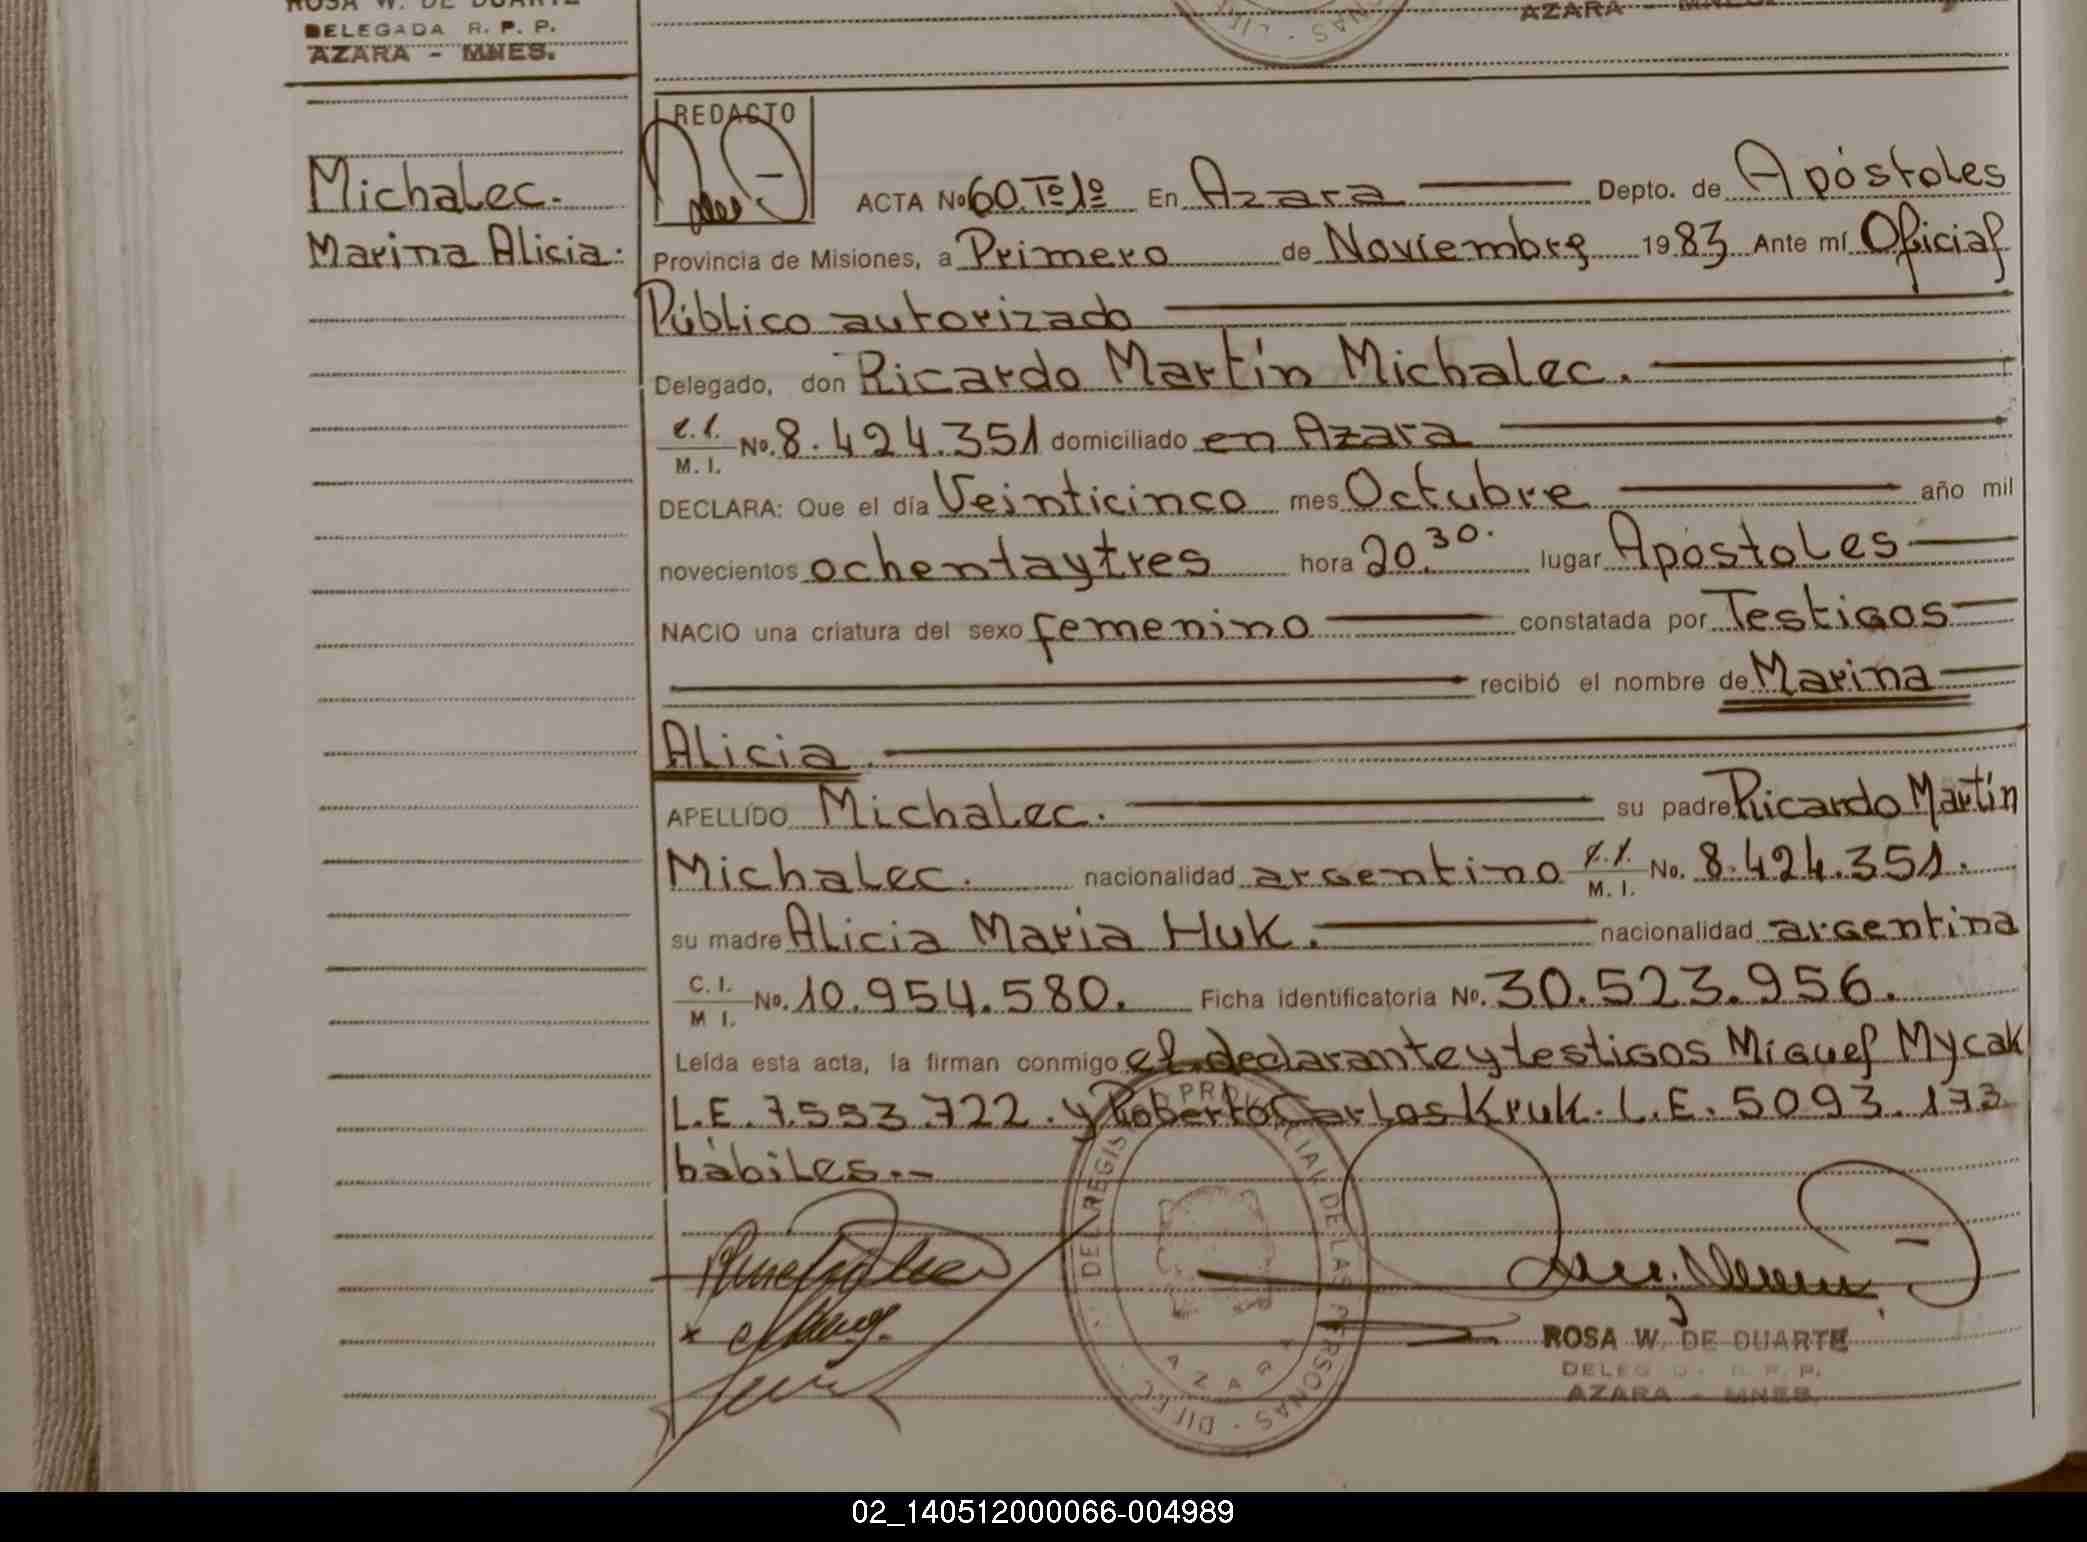 ROSA W. DE DUARTE
DELEGADA R. P. P.
AZARA - MNES.
AZARA - MNES.
Michalec.
Marina Alicia.
REDACTO
ACTA No 60. Tº 1º En Azara Depto. de Apóstoles
Provincia de Misiones, a Primero de Noviembre 1983 Ante mí Oficial
Público autorizado
Delegado, don Ricardo Martín Michalec.
C. I. No. 8.424.351 domiciliado en Azara
M. I.
DECLARA: Que el día Veinticinco mes Octubre año mil
novecientos ochentaytres hora 20.30. lugar Apóstoles
NACIO una criatura del sexo femenino constatada por Testigos
recibió el nombre de Marina
Alicia.
APELLIDO Michalec. su padre Ricardo Martín
Michalec. nacionalidad argentino C. I. No. 8.424.351.
M. I.
su madre Alicia María Huk. nacionalidad argentina
C. I. No. 10.954.580. Ficha identificatoria No. 30.523.956.
M I.
Leída esta acta, la firman conmigo el declarante y testigos Miguel Mycak
L.E. 7.553.722. y Roberto Carlos Kruk. L.E. 5093.173
hábiles.-
AZARA
ROSA W. DE DUARTE
DELEG R. P. P.
AZARA - MNES.
02_140512000066-004989